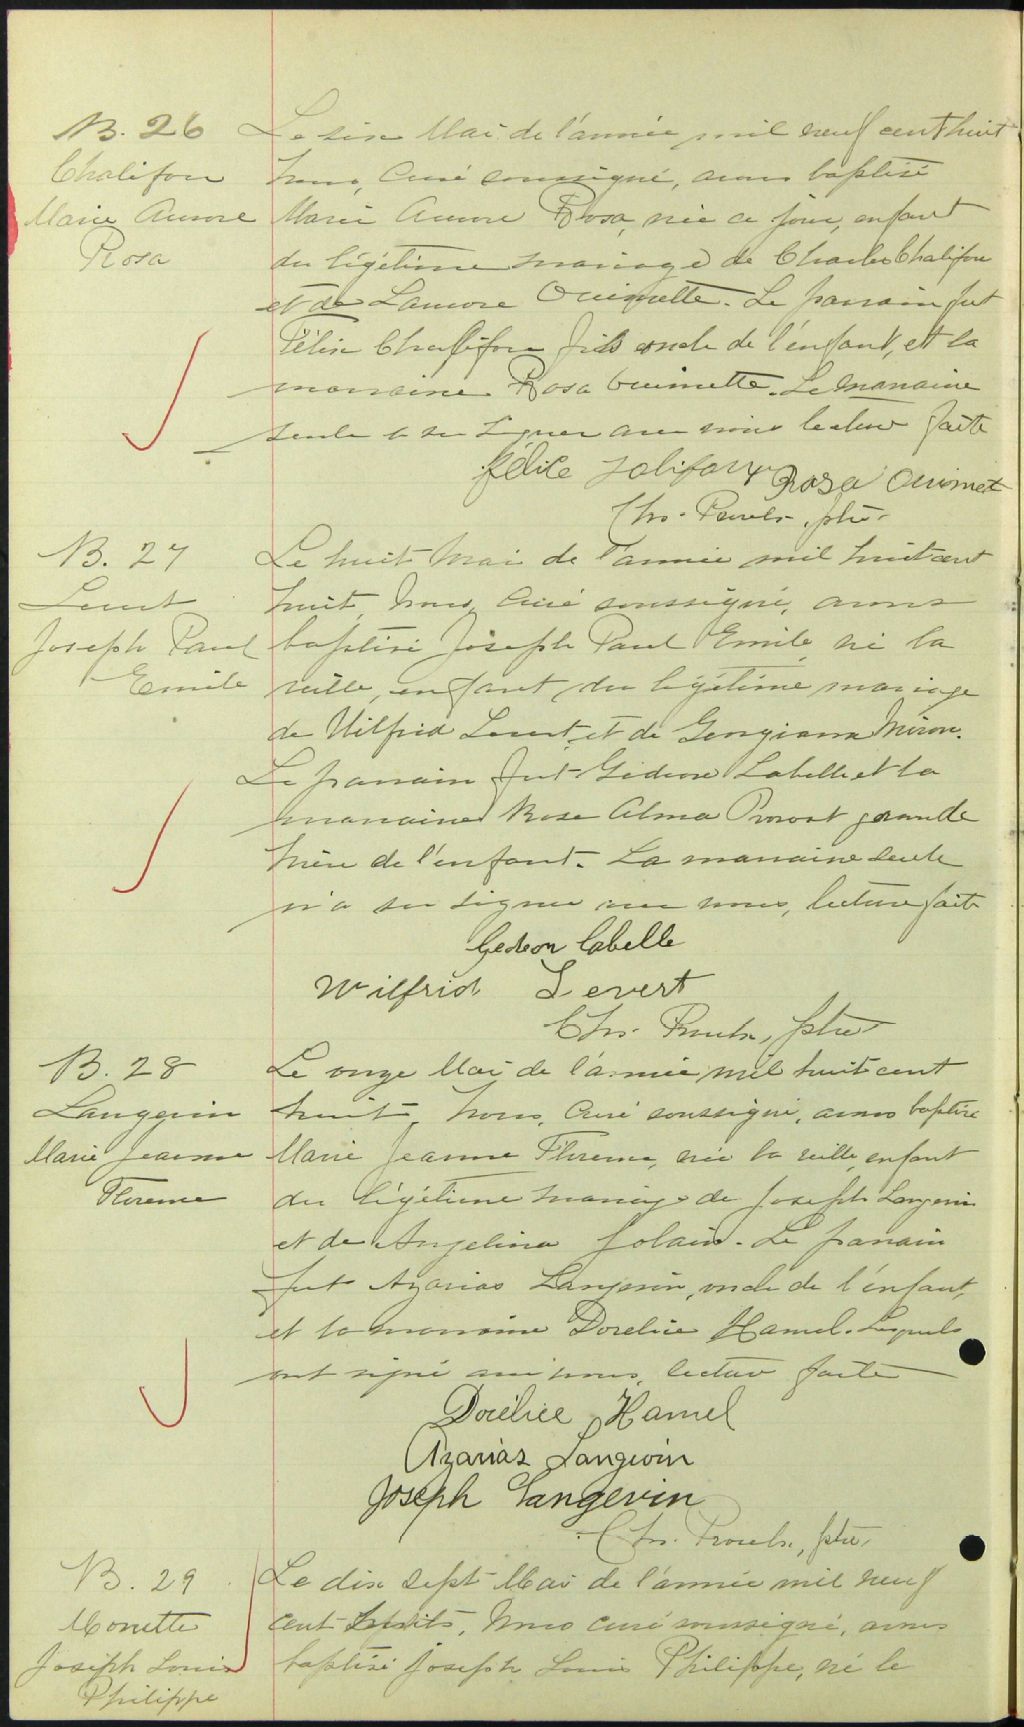 B. 26
Chalifou
Marie Aurore
Rosa
Le six Mai de l'année mil neuf cent huit
Nous, Curé soussigné, avons baptisé
Marie Aurore Rosa, née ce jour, enfant
du légitime mariage de Charles Chalifou
et de Laurore Ouimette. Le parrain fut
Félix Chalifou fils oncle de l'enfant, et la
marraine Rosa Ouimette. La marraine
seule a su signer avec nous lecture faite
félice Jolifou Rosa Ouimet
Chs. ptre.
B. 27
Levert
Joseph Paul
Emile
Le huit Mai de l'année mil huit cent
huit, Nous, Curé soussigné, avons
baptisé Joseph Paul Emile, né la
veille, enfant du légitime mariage
de Wilfrid Levert et de Georgiana Miron.
Le parrain fut Gédéon Labelle et la
marraine Rose Alma Provost grande
Mère de l'enfant. La marraine seule
n'a su signer avec nous, lecture faite
Gedeon Labelle
Wilfrid Levert
Chs. ptre
B. 28
Langevin
Marie Jeanne
Florence
Le onze Mai de l'année mil huit cent
huit, Nous, Curé soussigné, avons baptisé
Marie Jeanne Florence, née la veille, enfant
du légitime mariage de Joseph Langevin
et de Angelina Jolain. Le parrain
fut Azarias Langevin, oncle de l'enfant,
et la marraine Dorélice Hamel. Lesquels
ont signé avec nous, lecture faite
Dorélice Hamel
Azarias Langevin
Joseph Langevin
Chs. ptre.
B. 29
Monette
Joseph Louis
Philippe
Le dix sept Mai de l'année mil neuf
cent huit, Nous curé soussigné, avons
baptisé Joseph Louis Philippe, né le